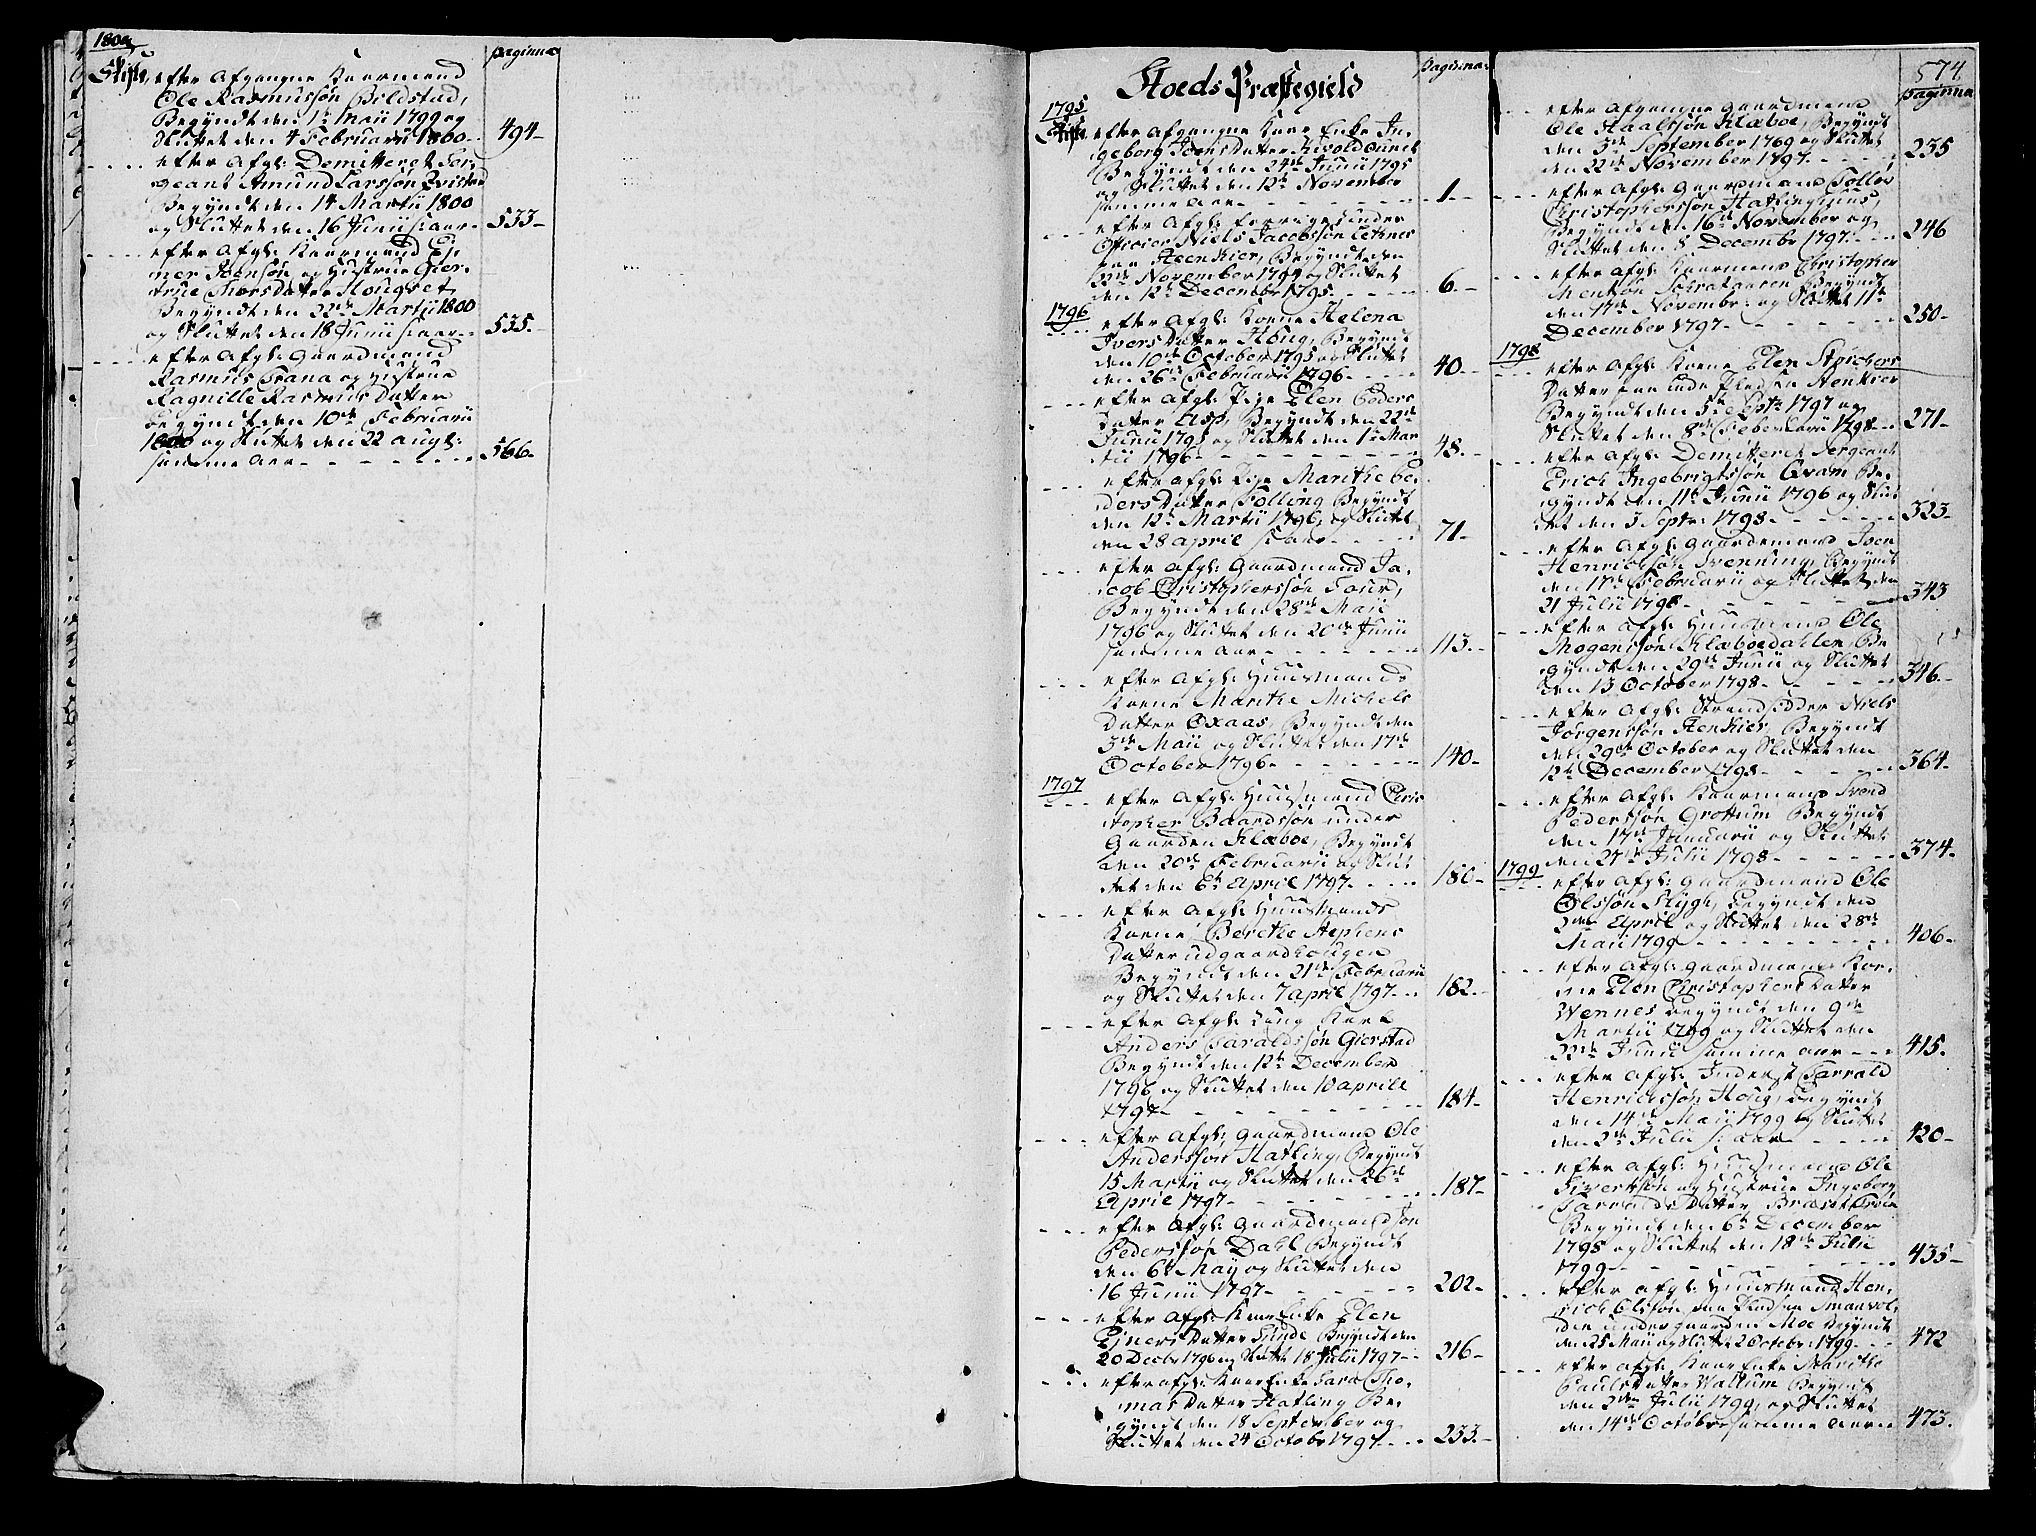 1800
pagina
Skifte efter Afgangne Kaarmand
Ole Rasmussøn Bildstad,
Begyndt den 1te Maii 1799 og
Sluttet den 4 Februarii 1800 494
efter Afgl: Demitteret Ser-
geant Amund Larssøn Qvistad
Begyndt den 14 Martii 1800
og Sluttet den 16 Junii s: aar 533
efter Afgl: Kaarmand Ej-
ner Johnsøn og Hustrue Gier-
true Thorsdatter Hougset
Begyndt den 22de Martii 1800
og Sluttet den 18 Junii s: aar 535.
efter Afgl: Gaardmand
Rasmus Trana og Hustrue
Ragnille Rasmusdatter
begyndt den 10de Februarii
1800 og Sluttet den 22 Augl:
samme Aar 566.
Stoeds Præstegield
pagina
1795
Skifte efter Afgangne Kaar Enke In-
geborg JoensDatter
Begyndt den 24de Junii 1795
og Sluttet den 12te November
samme Aar 1
efter Afgl: forrige Under
Officier Niels Jacobssøn
paa Steenkier, Begyndt den
November 1794 og Sluttet
den 12te December 1795 6
1796
efter Afgl: Koene Helena
IversDatter Houg, Begyndt
den 10de October 1795 og Sluttet
den 26de Februarii 1796 40
efter Afgl: Pige Elen Peders
Datter Asp, Begyndt den 22de
Junii 1795 og Sluttet den 1te Mar
tii 1796 48
efter Afgl: Pige Marithe Pe-
dersDatter Følling Begyndt
den 12te Martii 1796, og Sluttet
den 28 April s: aar 71
efter Afgl: Gaardmand Ja-
cob Christopherssøn Foss,
Begyndt den 28de Maii
1796 og Sluttet den 20de Junii
samme Aar 113.
efter Afgl: Huusmands
Koene Marithe Michels
Datter Oxaas, Begyndt den
3de Maii og Sluttet den 17de
October 1796 140
1797
efter Afgl: Huusmand Chris
topher Baardssøn under
Gaarden Klæboe, Begyndt
den 20de Februarii og Slut
tet den 6te April 1797 180
efter Afgl: Huusmands
Koene Berethe Stephens
Datter udgaardhougen
Begyndt den 21de Februarii
og Sluttet den 7 April 1797 182.
efter Afgl: Ung Karl
Anders Taraldssøn Gierstad
Begyndt den 12te December
1796 og Sluttet den 10 Aprili
1797 184
efter Afgl: Gaardmand Ole
Anderssøn Hatling, Begyndt
15 Martii og Sluttet den 26de
April 1797 187
efter Afgl: Gaardmand Jon
Pederssøn Dahl Begyndt
den 6te May og Sluttet den
16 Junii 1797 202
efter Afgl: Kaar Enke Elen
EjnersDatter Sunde Begyndt den
20 Decbr 1796 og Sluttet 18 Julii 1797 216
efter Afgl: Kaar Enke Sara Tho-
masDatter Hatling Be-
gyndt den 18 September og
Sluttet den 24 Octobr 1797 233
574
pagina
efter Afgangne Gaardmand
Ole Haaltsøn Klæboe, Begyndt
den 3de September 1769 og Sluttet
den 22de November 1797 235
efter Afgl: Gaardmand Tolløv
Christopherssøn Hatlinghuus,
Begyndt den 16de November og
Sluttet den 8 Decembr 1797 246
efter Afgl: Kaarmand Christopher
den 17de Novembr: og Sluttet 11te
December 1797 250
1798
efter Afgl: Koene Elen Stephens
Datter paa Pladsen Steenkier
Begyndt den 5te Sept: 1797 og
Sluttet den 8de Februarii 1798 271
efter Afgl: Demitteret Sergeant
Erich Ingebrigtssøn Qvam Be-
gyndt den 11te Junii 1796 og Slut
tet den 3 Septr: 1798 323
efter Afgl: Gaardmand Iver
Henrichssøn Svenning, Begyndt
den 17de Februarii og Sluttet den
21 Julii 1798 343
efter Afgl: Huusmand Ole
Mogenssøn Klæboedahlen, Be
gyndt den 29de Junii og Sluttet
den 13 October 1798 346
efter Afgl: Strandsidder Niels
Jørgenssøn Steenkier, Begyndt
den 29de October og Sluttet den
12te December 1798 364
efter Afgl: Kaarmand Svend
Pederssøn Grottum Begyndt
den 17de Januarii og Sluttet
den 27de Julii 1798 374
1799
efter Afgl: Gaardmand Ole
Olssøn Hyge, Begyndt den
2den April og Sluttet den 28de
Maii 1799 406
efter Afgl: Gaardmands Koe-
ne Elen Christophers Datter
Wennes Begyndt den 9de
Martii 1799 og Sluttet den
22de Junii samme aar 415.
efter Afgl: Inderst Tarrald
Henrichssøn Houg, Begyndt
den 14de Maii 1799 og Sluttet
den 2de Julii s: aar 420
efter Afgl: Huusmand Ole
Sivertssøn og Hustrue Ingeborg
TarraldsDatter
Begyndt den 6te December
1798 og Sluttet den 18de Julii
1799 435
efter Afgl: Huusmand Hen-
rich Olssøn paa Pladsen Smaavol-
den under gaarden Moe Begyndt
den 25 Maii og Sluttet 2 Octobr: 1799 472
efter Afgl: Kaar Enke Marithe
PaulsDatter Wattum Begyndt
den 2den Julii 1799, og Sluttet
den 14de October samme Aar 473.